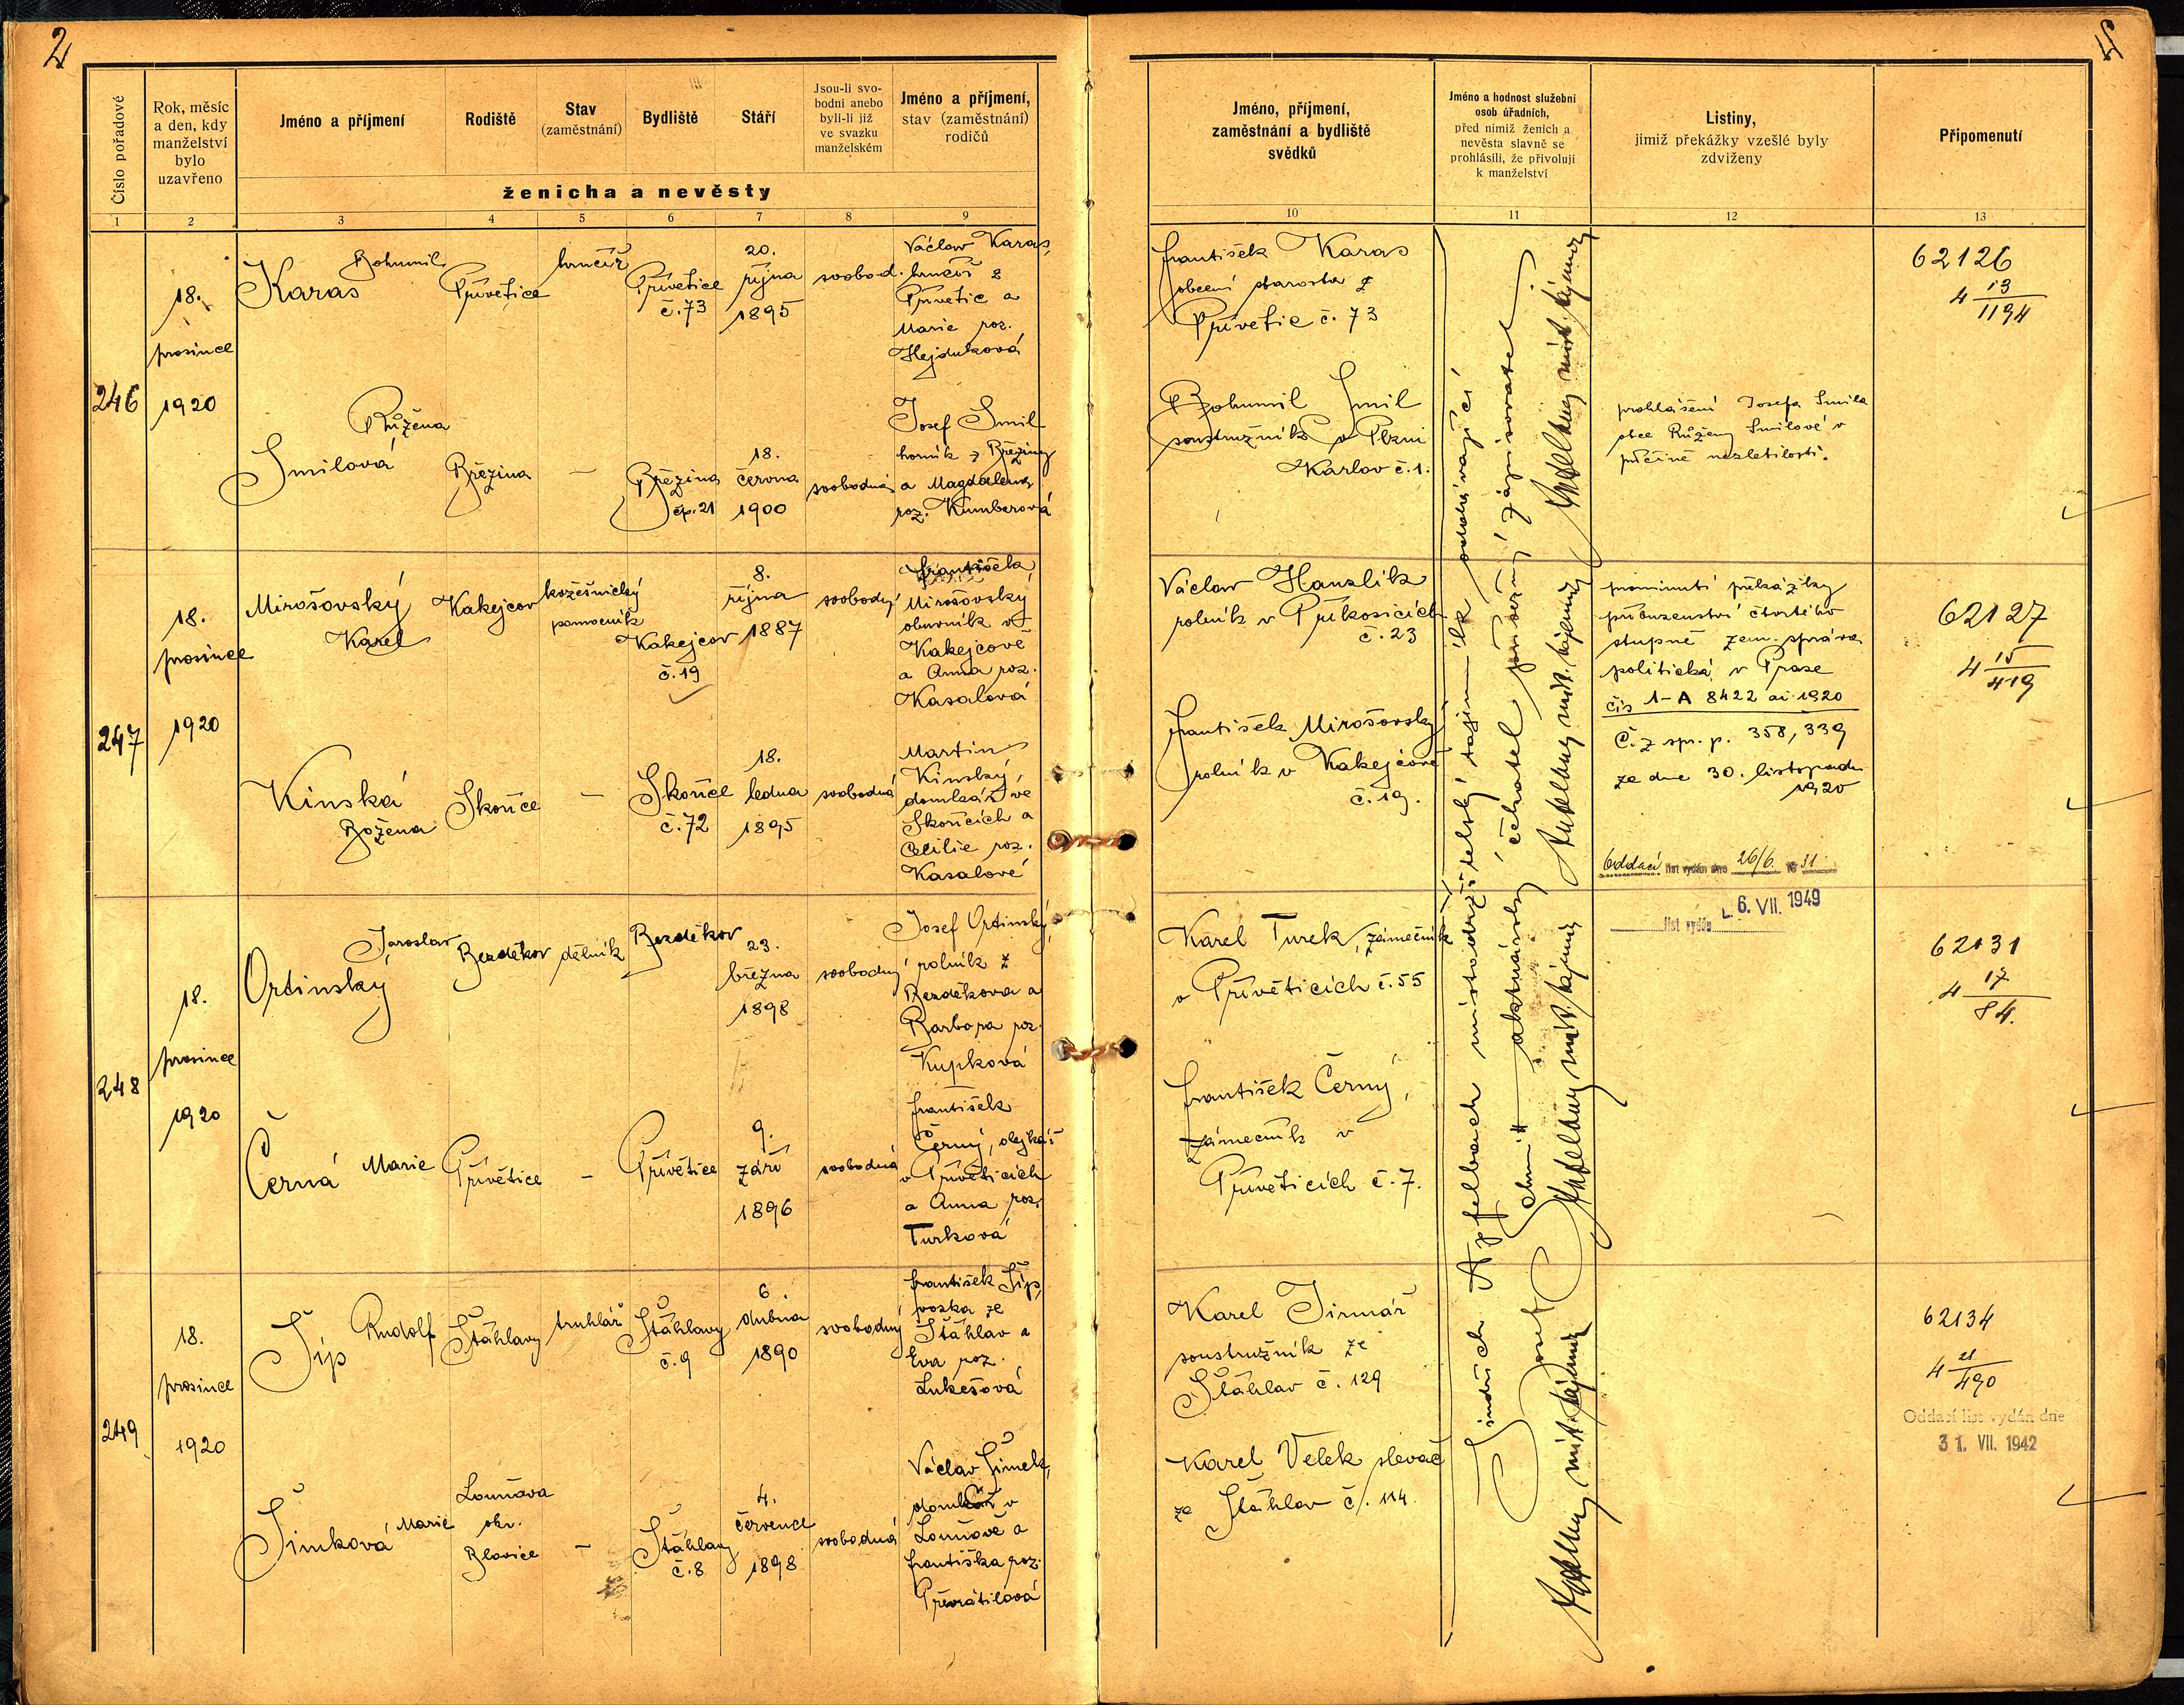 2
Číslo pořadové
Rok, měsíc
a den, kdy
manželství
bylo
uzavřeno
Jméno a příjmení
Rodiště
Stav
(zaměstnání)
Bydliště
Stáří
Jsou-li svo-
bodni anebo
byli-li již
ve svazku
manželském
Jméno a příjmení,
stav (zaměstnání)
rodičů
ženicha a nevěsty
1 2 3 4 5 6 7 8 9
246
18.
prosince
1920
Bohumil
Karas
Přívětice
hrnčíř
Přívětice
č. 73
20.
října
1895
svobod.
Václav Karas,
hrnčíř z
Přívětic a
Marie roz.
Hejduková
Růžena
Smilová
Březina
—
Březina
čp. 21
18.
června
1900
svobodná
Josef Smil
horník z Březiny
a Magdalena
roz. Kumberová
247
18.
prosince
1920
Mirošovský
Karel
Kakejcov
kožešnický
pomocník
Kakejcov
č. 19
8.
října
1887
svobodný
František
Mirošovský
obuvník v
Kakejcově
a Anna roz.
Kasalová
Kinská
Božena
Skořice
—
Skořice
č. 72
18.
ledna
1895
svobodná
Martin
Kinský,
domkář ve
Skořicích a
Cecilie roz.
Kasalové
248
18.
prosince
1920
Jaroslav
Ortinský
Bezděkov
dělník
Bezděkov
23.
března
1898
svobodný
Josef Ortinský,
rolník z
Bezděkova a
Barbora roz.
Kupková
Černá Marie
Přívětice
—
Přívětice
9.
září
1896
svobodná
František
Černý, olejkář
v Příveticích
a Anna roz.
Turková
249
18.
prosince
1920
Šíp Rudolf
Štáhlavy
truhlář
Štáhlavy
č. 9
6.
dubna
1890
svobodný
František Šíp,
ze
Štáhlav a
Eva roz.
Lukešová
Šimková Marie
Louňová
okr.
Blovice
—
Štáhlavy
č. 8
4.
července
1898
svobodná
Václav Šimek,
domkář v
Louňově a
Františka roz.
Převrátilová
Jméno, příjmení,
zaměstnání a bydliště
svědků
Jméno a hodnost služební
osob úřadních,
před nimiž ženich a
nevěsta slavně se
prohlásili, že přivolují
k manželství
Listiny,
jimiž překážky vzešlé byly
zdviženy
Připomenutí
10 11 12 13
František Karas
obecní starosta z
Přívětic č. 73
Bohumil Smil
soustružník v Plzni
Karlov č. 1.
Václav Hanzlík
rolník v Příkosicích
č. 23
František Mirošovský
rolník v Kakejcově
č. 19.
Karel Turek, zámečník
v Příveticích č. 55
František Černý,
zámečník v
Příveticích č. 7.
Karel Jirmář
soustružník ze
Štáhlav č. 129
Karel Velek slevač
ze Štáhlav č. 114.
Jindřich Apfelbach místodržitelský tajemník oddávající
aktuárský čekatel zapisovatel
prohlášení Josefa Smila
otce Růženy Smilové v
příčině nezletilosti.
prominutí překážky
příbuzenství čtvrtého
stupně zem. správa
politická v Praze
čís 1-A 8422 ai 1920
Č. z spr. p. 358, 339
ze dne 30. listopadu
1920
Oddací list vydán dne 26/6. 19 31.
list vydán 6. VII. 1949
62126
4 13/1194
62127
4 15/419
62131
4 17/84.
62134
4 21/490
Oddací list vydán dne
31. VII. 1942